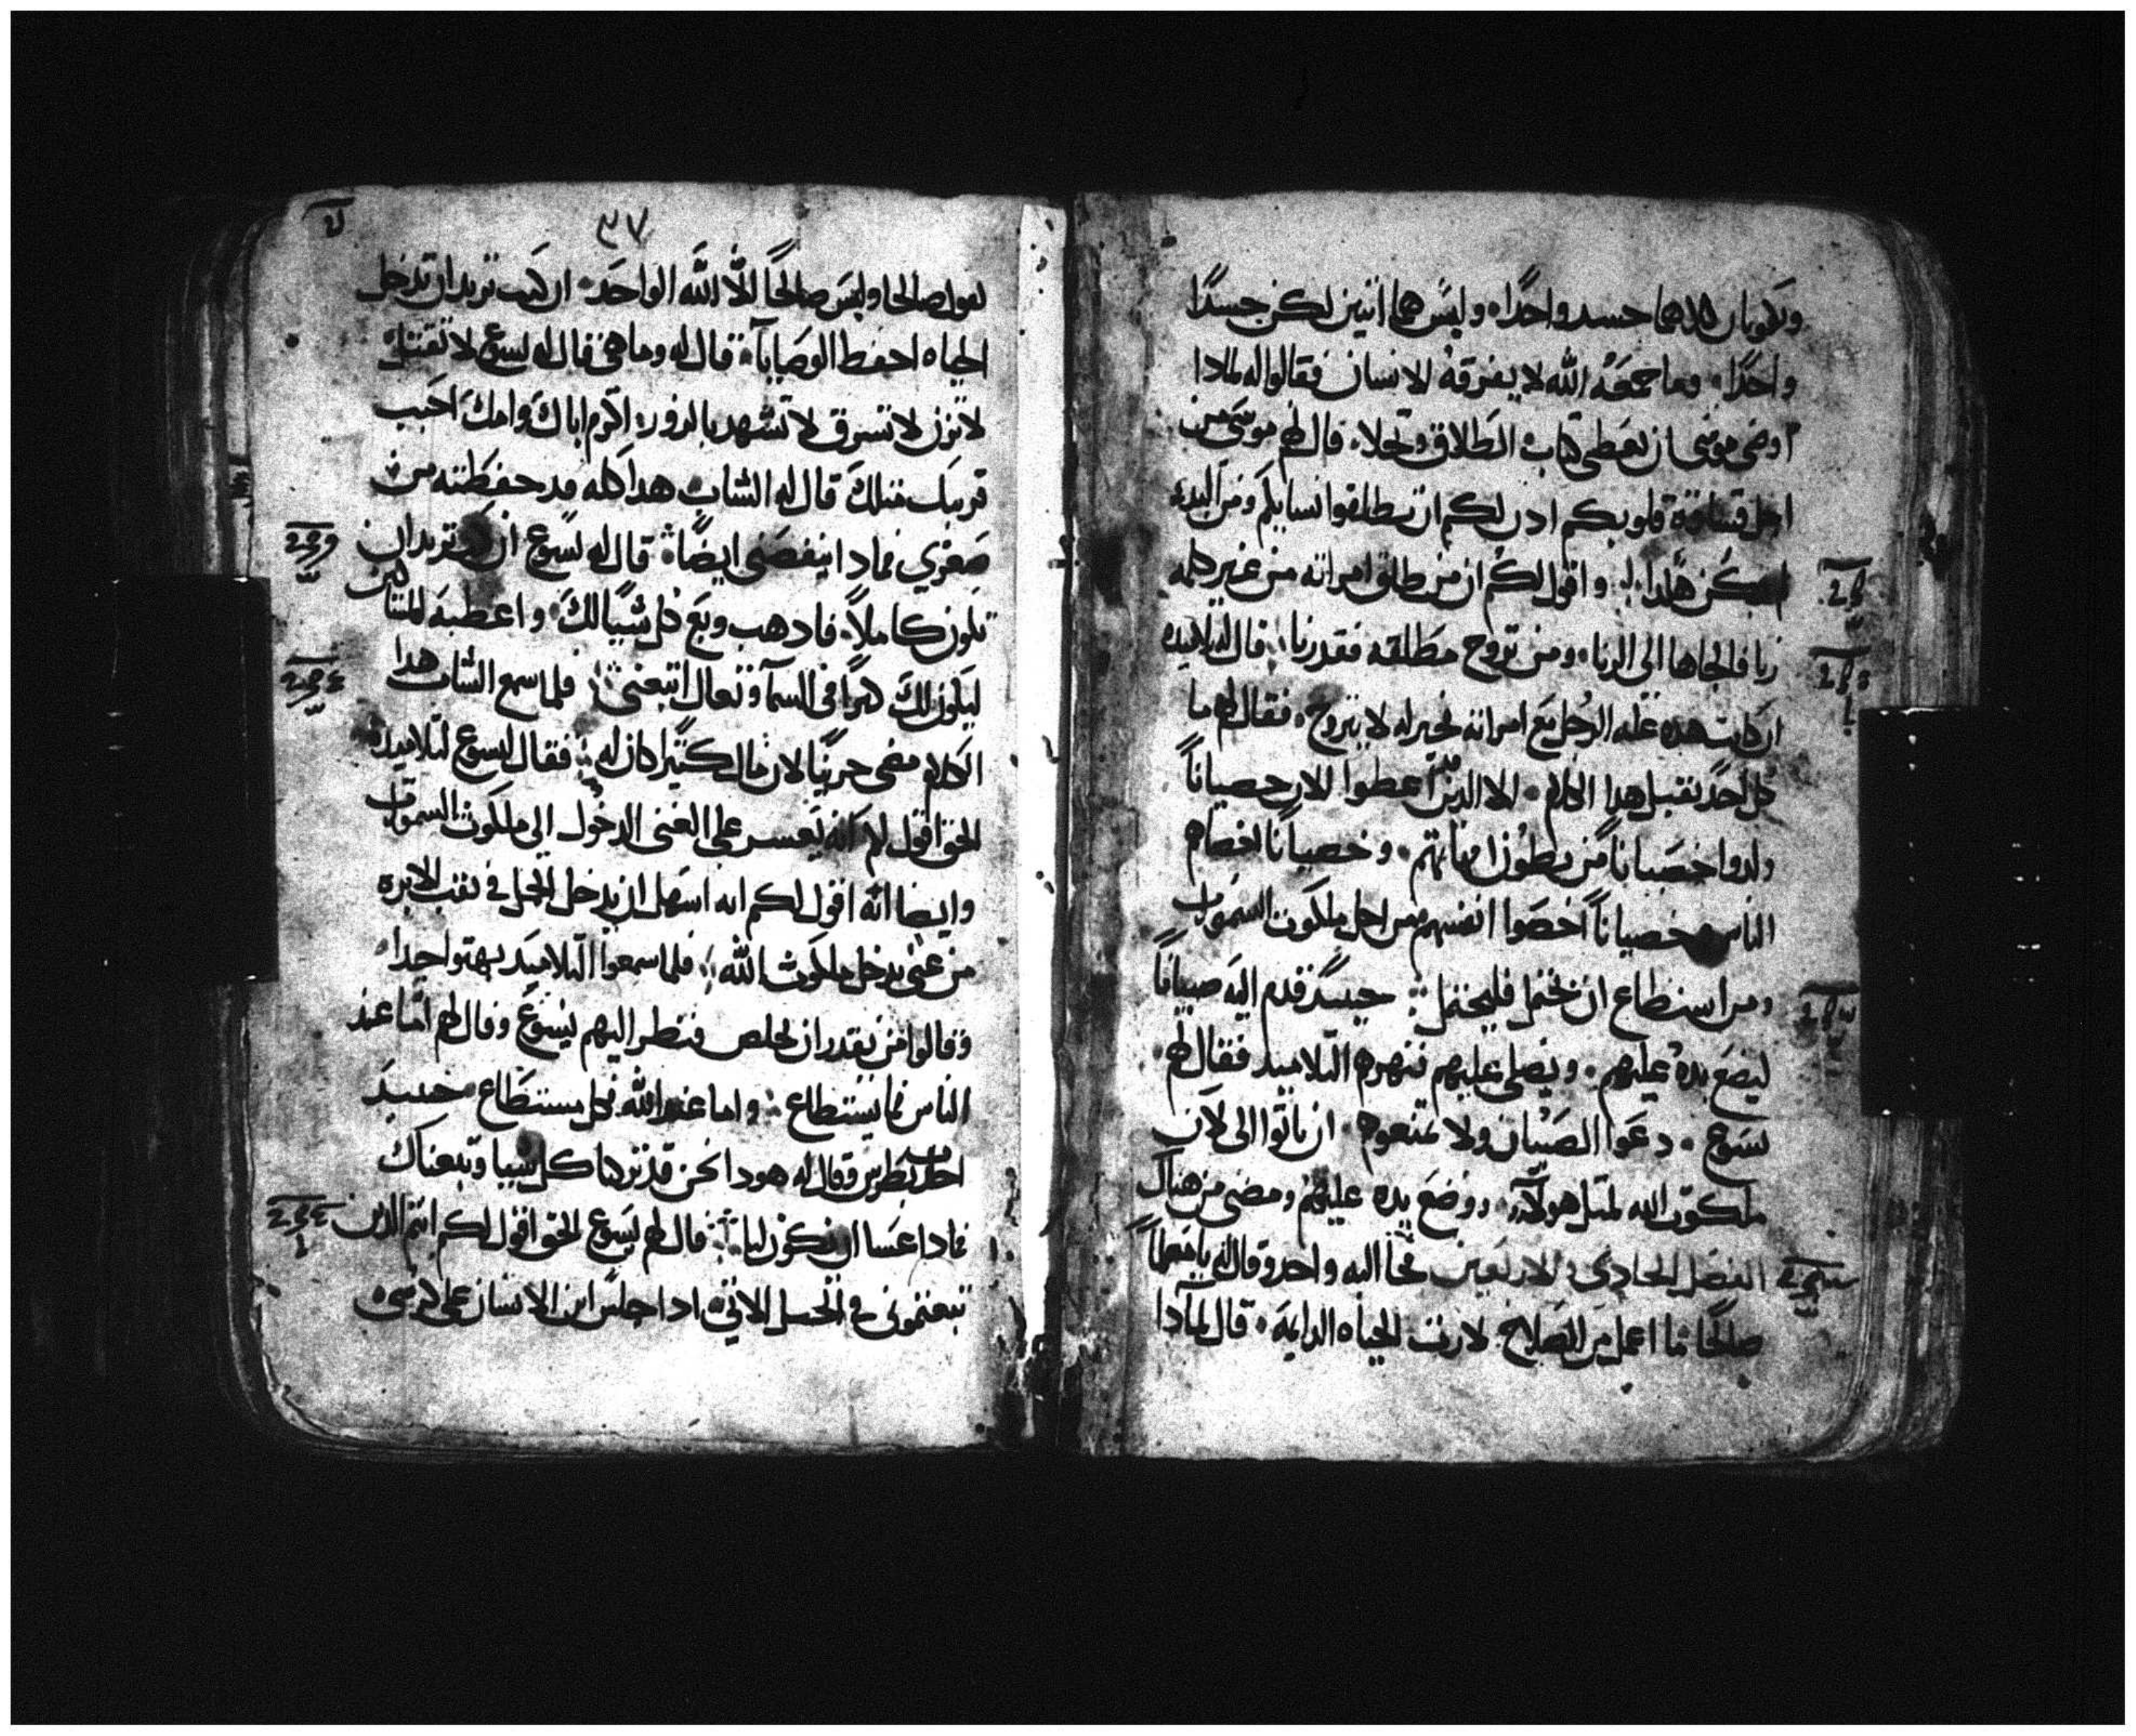 ويكونان كلاهما جسد واحدًا وليس هما اثنين لكن جسدًا
واحدًا وما جمعه الله لا يفرقه الانسان فقالوا له لمادا
اوصى موسى ان يعطى كتاب الطلاق وتخلا قال لهم موسى من
اجل قساوة قلوبكم ادن لكم ان تطلقوا نسايكم ومن البدء
لم يكن هكدا واقول لكم ان من طلق امراته من غير كلمه
زنا فالجاها الى الزنا ومن تزوج مطلقه فقد زنا قال له تلاميده
ان كانت هده علة الرجل مع امراته فخير له لا يتزوج فقال لهم ما
كل احد يقبل هدا الكلام الا الدين اعطوا لان خصياناً
ولدوا خصيانا من بطون امهاتهم وخصياناً اخصاهم
الناس وخصياناً اخصوا انفسهم من اجل ملكوت السموات
ومن استطاع ان يحتمل فليحتمل حينيد قدم اليه صبياناً
ليضع يده عليهم ويصلي عليهم فنهرهم التلاميد فقال لهم
يسوع دعوا الصبيان ولا تمنعوهم ان ياتوا الى لان
ملكوت الله لمثل هولاء ووضع يده عليهم ومضى من هناك
الفصل الحادي والاربعين فجا اليه واحد وقال له يا معلماً
صالحًا ما اعمل من الصلاح لارث الحياه الدايمه قال لمادا
٣٧
تقول صالحا وليس صالحًا الا الله الواحد ان كنت تريد ان تدخل
الحياه احفظ الوصايا قال له وما هي قال له يسوع لا تقتل
لا تزن لا تسرق لا تشهد بالزور اكرم اباك وامك احبب
قريبك مثلك قال له الشاب هدا كله قد حفظته من
صغري فمادا ينقصني ايضًا قال له يسوع ان كنت تريد ان
تكون كاملاً فادهب وبع كل شيًا لك واعطيه للمساكين
ليكون لك كنزاً في السما وتعال اتبعني فلما سمع الشاب هدا
الكلام مضى حزينًا لان مال كتير كان له فقال يسوع لتلاميده
الحق اقول لكم انه يعسر على الغني الدخول الى ملكوت السموات
وايضا انه اقول لكم انه اسهل ان يدخل الجمل في ثقب الابره
من غني يدخل ملكوت الله فلما سمعوا التلاميد بهتوا جدا
وقالوا من يقدر ان يخلص فنظر اليهم يسوع وقال لهم اما عند
الناس فما يستطاع واما عند الله فكل يستطاع حينيد
اجاب بطرس وقال له هودا نحن قد تركنا كل شيا وتبعناك
فمادا عسا ان يكون لنا قال لهم يسوع الحق اقول لكم انتم الدين
تبعتموني في الجيل الاتي ادا جلس ابن الانسان على كرسي